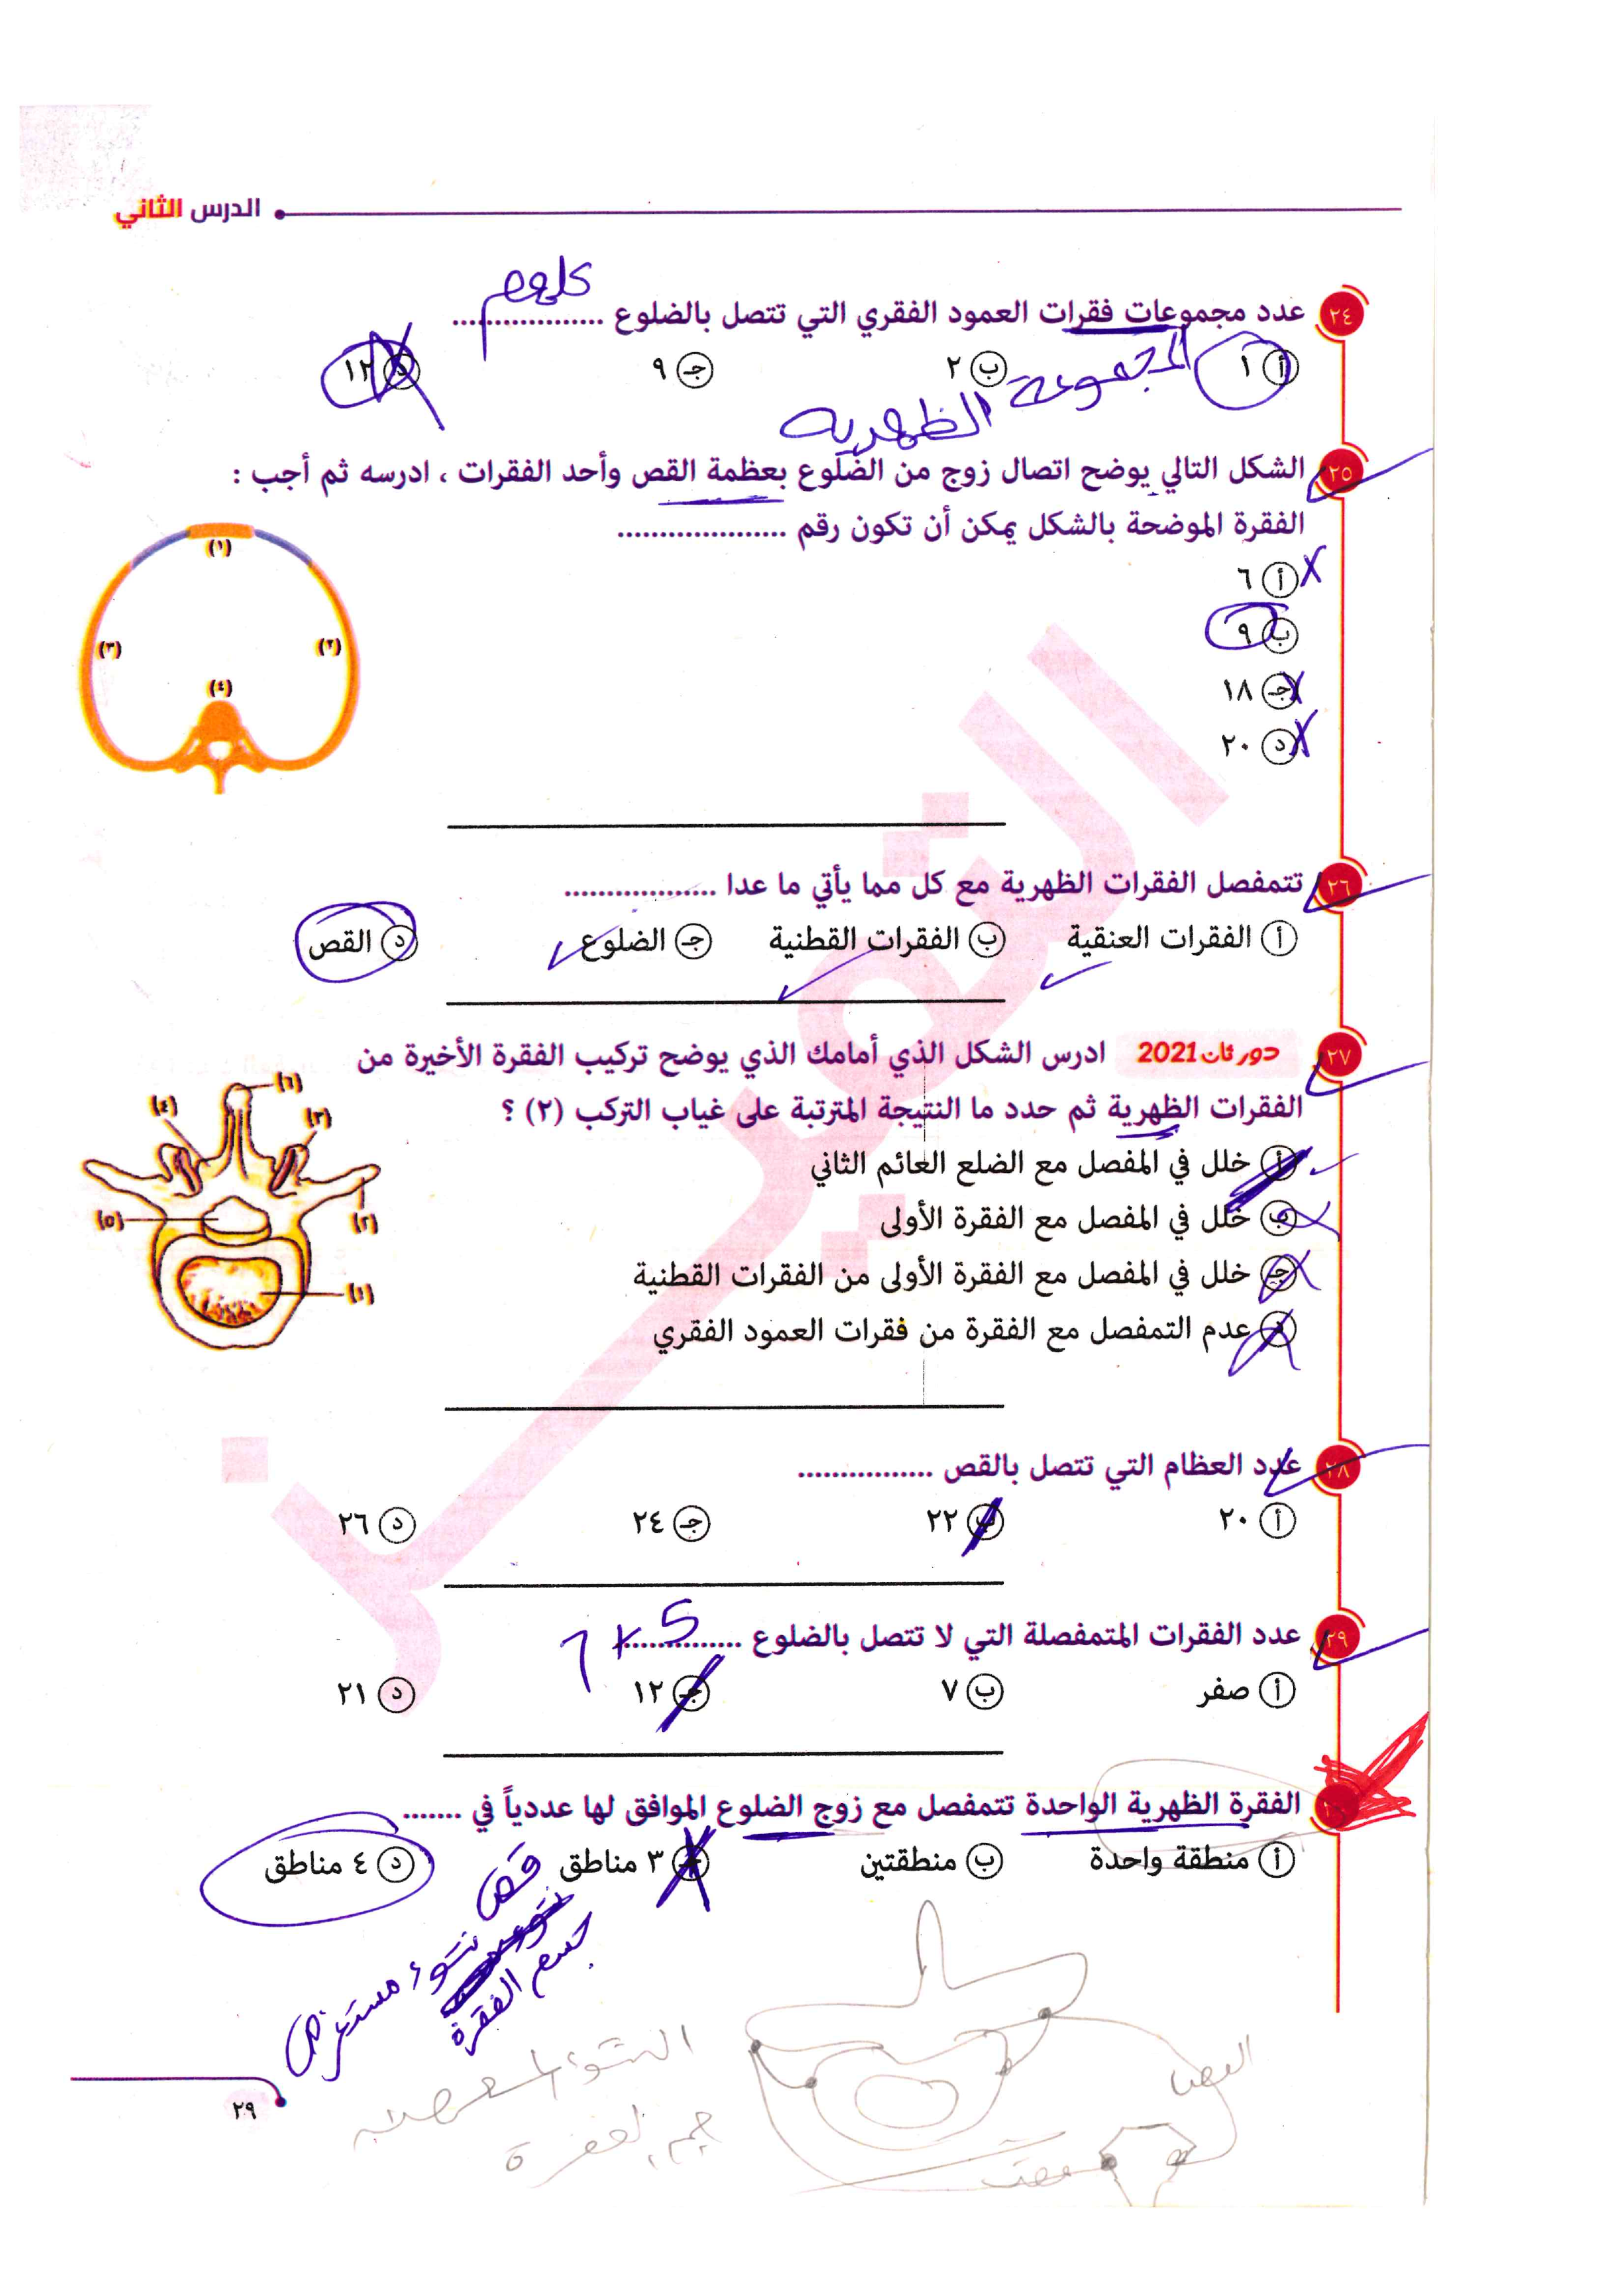 الدرس الثاني
٢٤ عدد مجموعات فقرات العمود الفقري التي تتصل بالضلوع ..................
أ ١ ب ٢ جـ ٩ د ١٢
المجموعة الظهرية
٢٥ الشكل التالي يوضح اتصال زوج من الضلوع بعظمة القص وأحد الفقرات ، ادرسه ثم أجب :
الفقرة الموضحة بالشكل يمكن أن تكون رقم ....................
أ ٦
ب ٩
جـ ١٨
د ٢٠
(١)
(٣) (٢)
(٤)
٢٦ تتمفصل الفقرات الظهرية مع كل مما يأتي ما عدا ..................
أ الفقرات العنقية ب الفقرات القطنية جـ الضلوع د القص
٢٧ دور ثان 2021 ادرس الشكل الذي أمامك الذي يوضح تركيب الفقرة الأخيرة من
الفقرات الظهرية ثم حدد ما النتيجة المترتبة على غياب التركب (٢) ؟
أ خلل في المفصل مع الضلع العائم الثاني
ب خلل في المفصل مع الفقرة الأولى
جـ خلل في المفصل مع الفقرة الأولى من الفقرات القطنية
د عدم التمفصل مع الفقرة من فقرات العمود الفقري
(٦)
(٤) (٣)
(٥) (٢)
(١)
٢٨ عدد العظام التي تتصل بالقص ................
أ ٢٠ ب ٢٢ جـ ٢٤ د ٢٦
٢٩ عدد الفقرات المتمفصلة التي لا تتصل بالضلوع ...............
7 + 5
أ صفر ب ٧ جـ ١٢ د ٢١
الفقرة الظهرية الواحدة تتمفصل مع زوج الضلوع الموافق لها عددياً في .......
أ منطقة واحدة ب منطقتين جـ ٣ مناطق د ٤ مناطق
قص
نتوء مستعرض
جسم الفقرة
التوير
٢٩